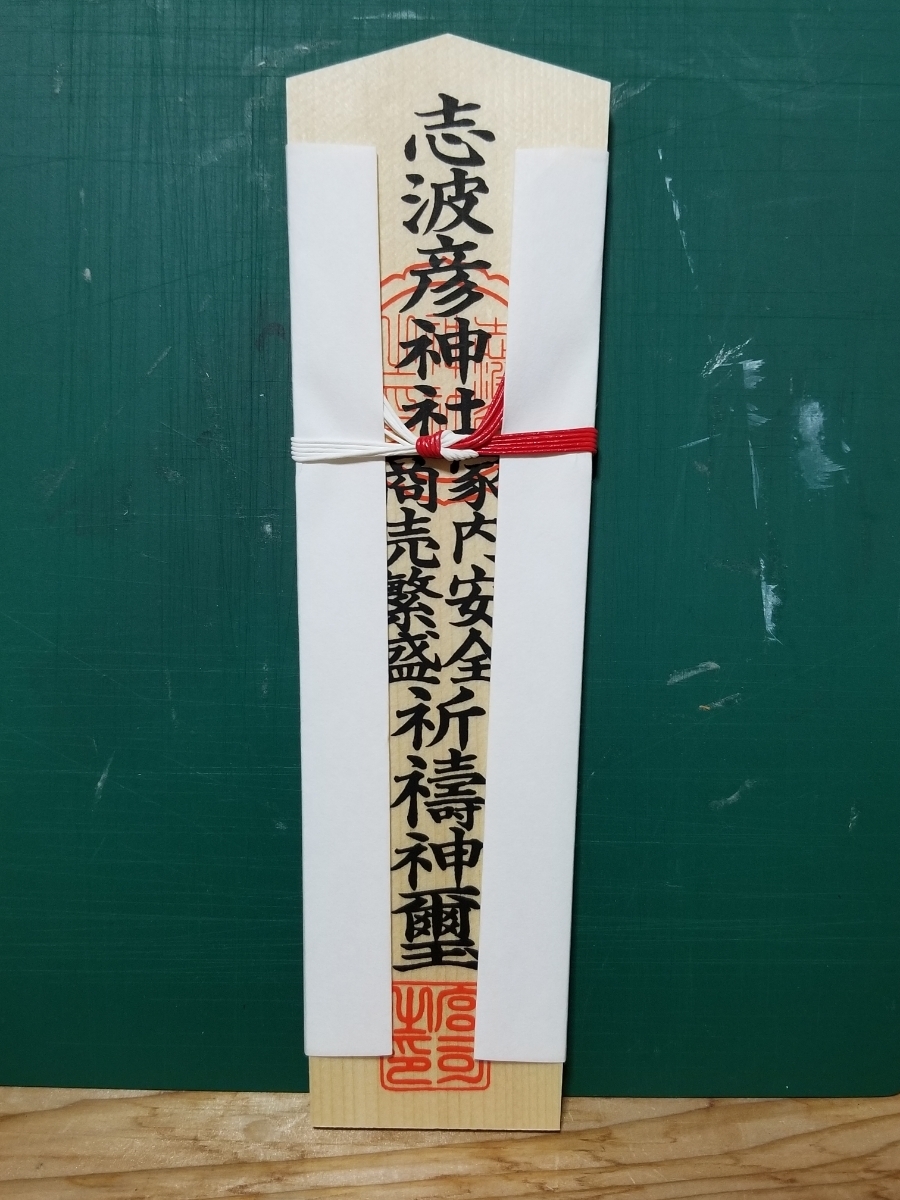 志波彦神社
家内安全
商売繁盛
祈禱神璽
宮司之印